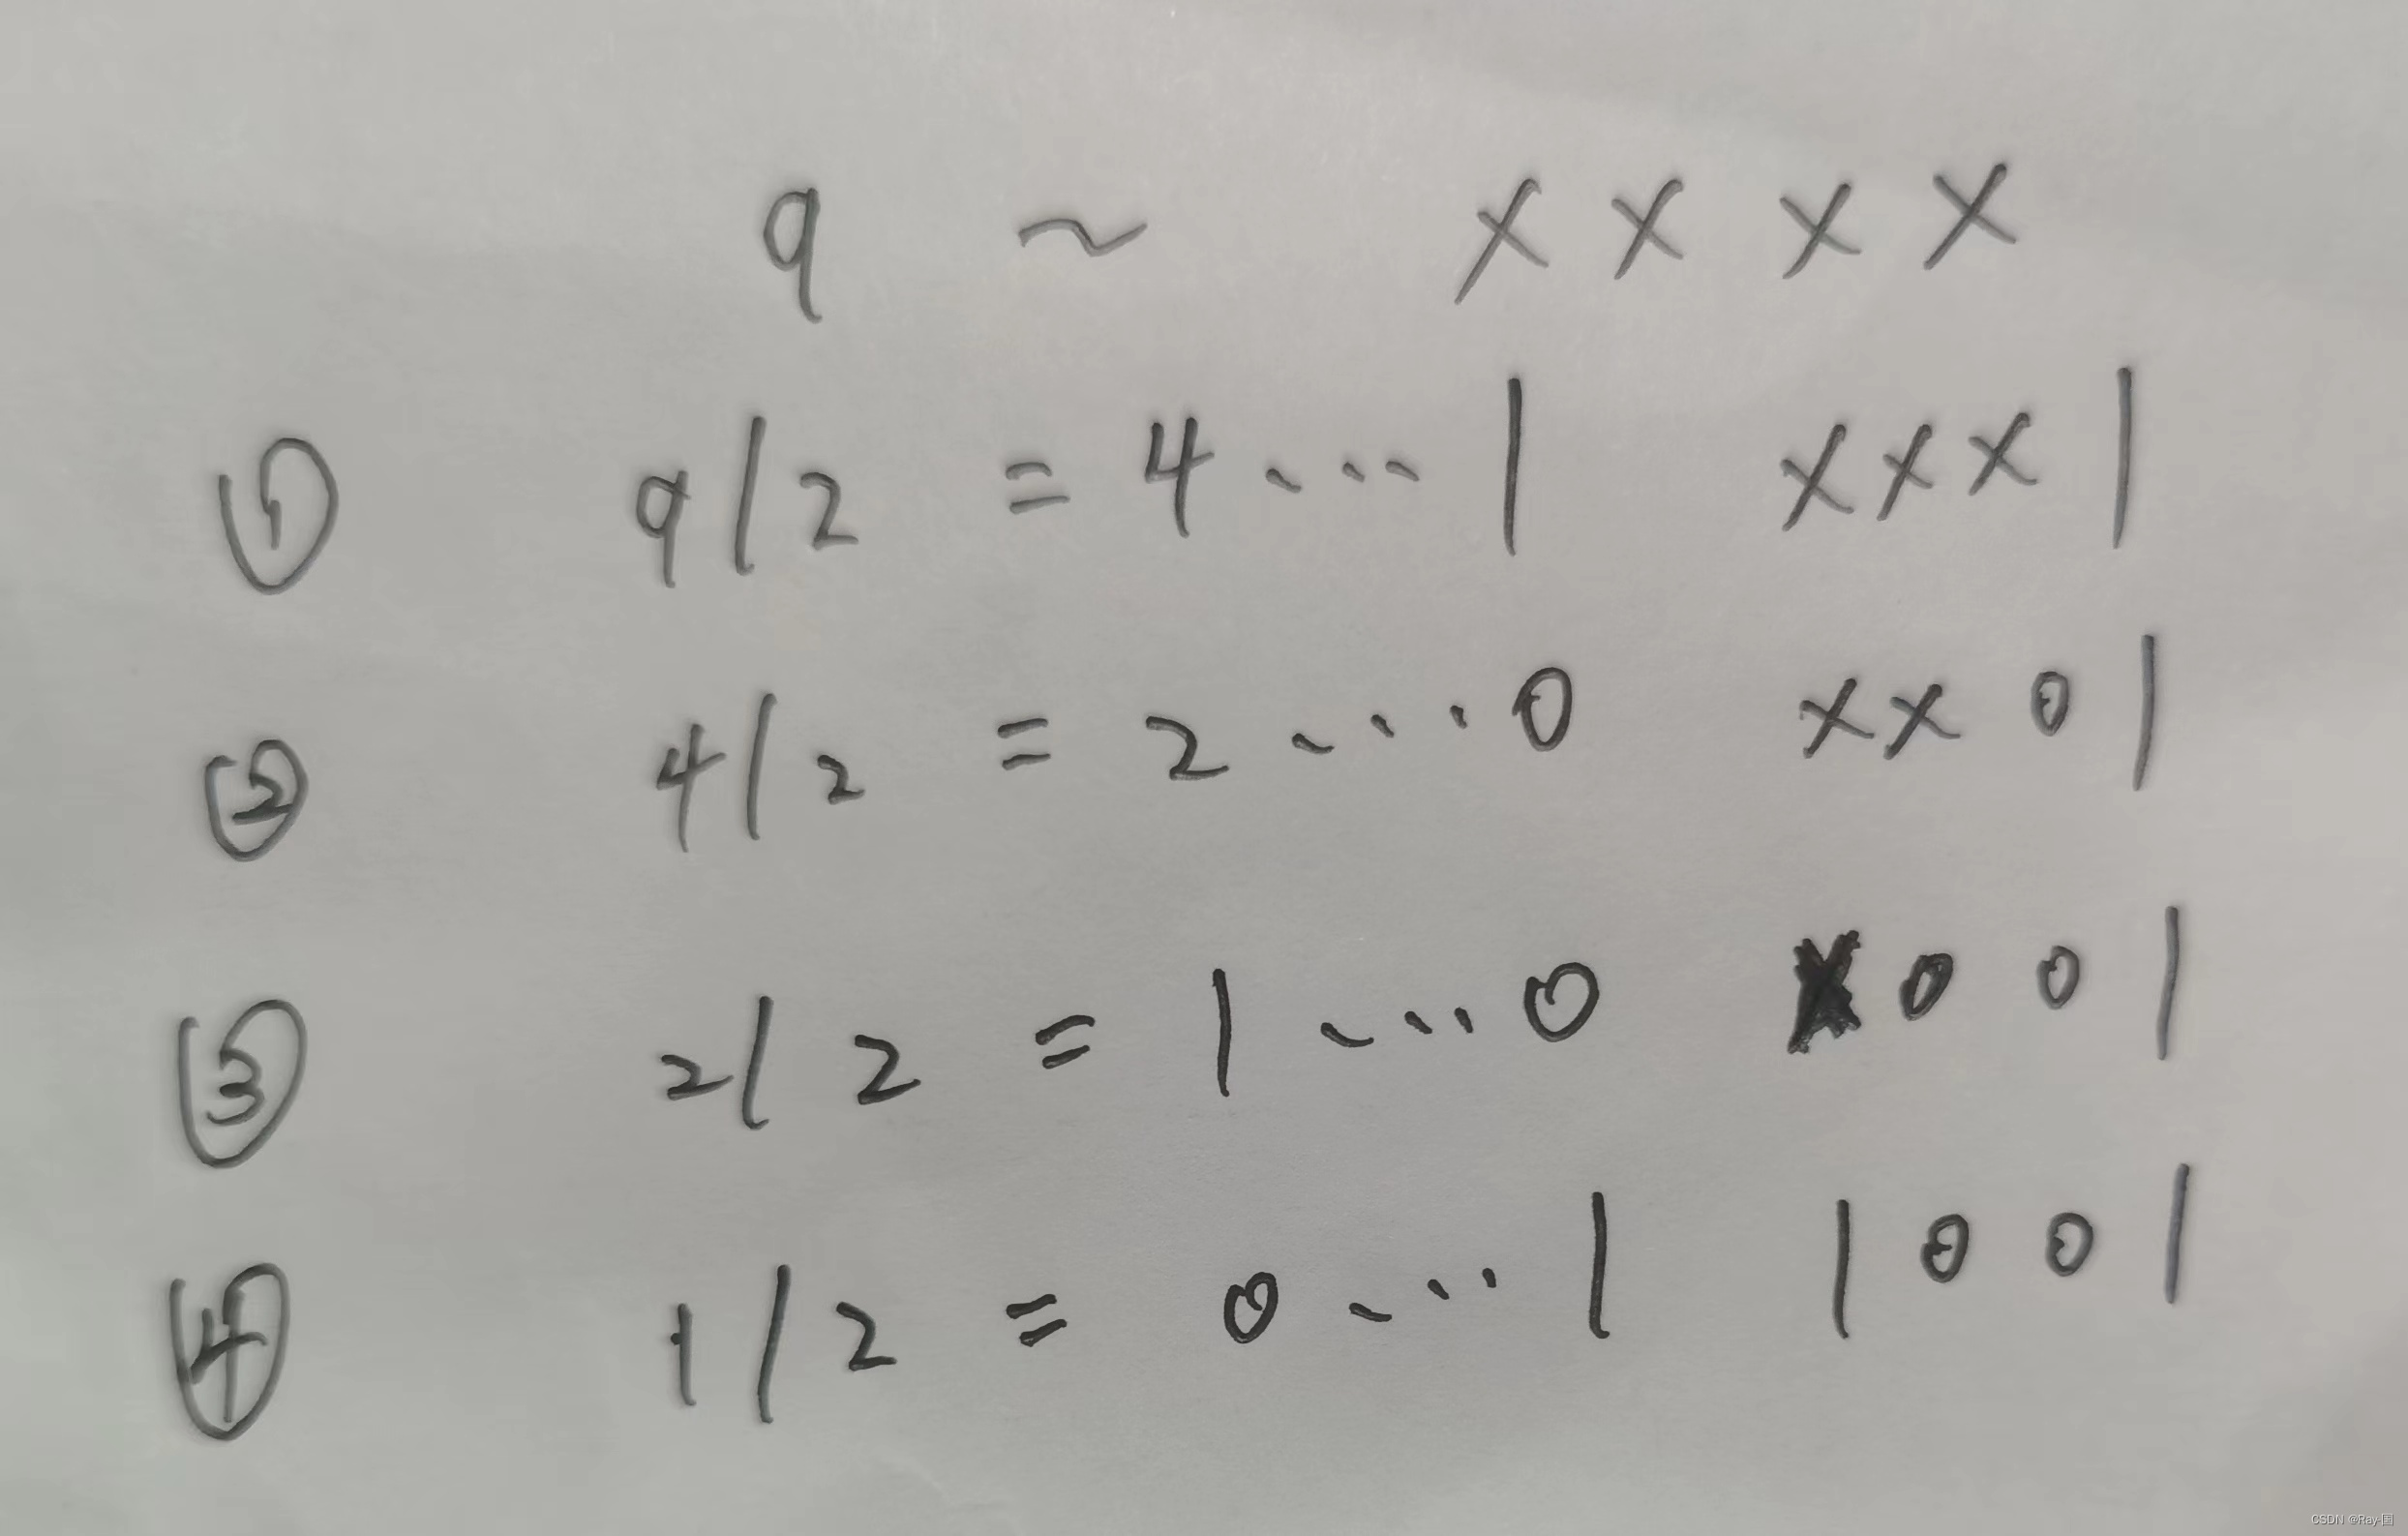 9 ~ x x x x
① 9/2 = 4 ... 1 x x x 1
② 4/2 = 2 ... 0 x x 0 1
③ 2/2 = 1 ... 0 x 0 0 1
④ 1/2 = 0 ... 1 1 0 0 1
CSDN @Ray-国